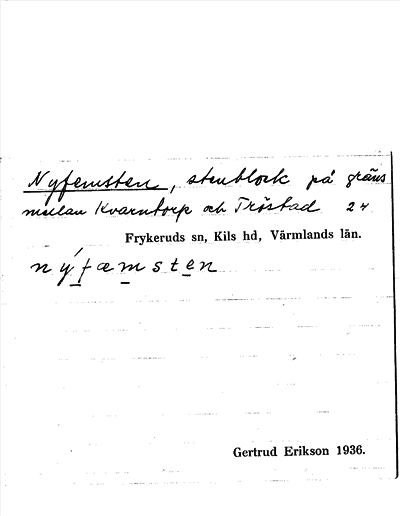 Nyfemsten, stenblock på gräns
mellan Kvarntorp och Tröstad 24
Frykeruds sn, Kils hd, Värmlands län.
nýfæmsten
Gertrud Erikson 1936.